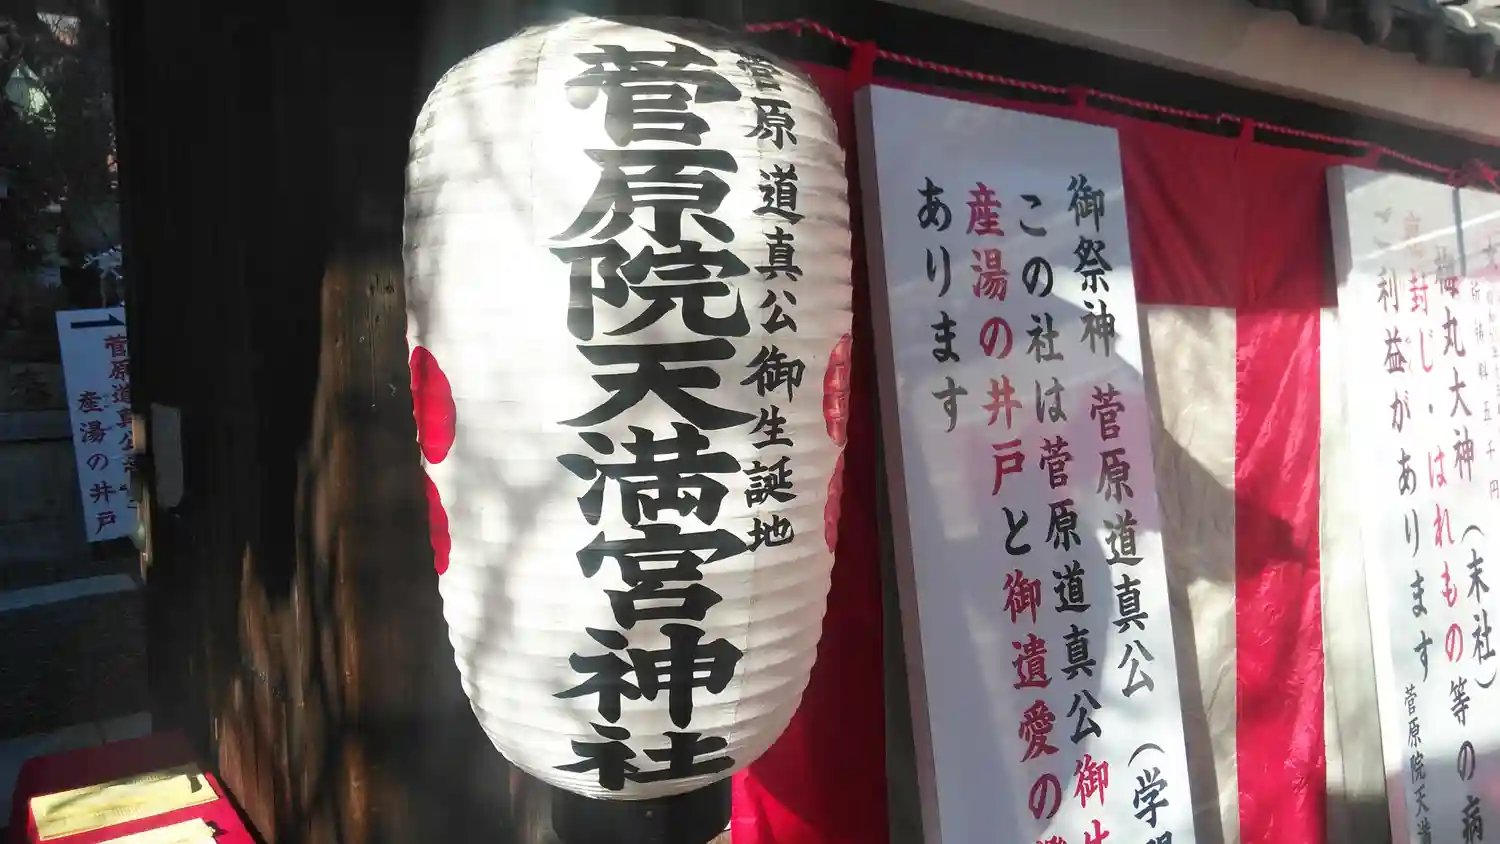 菅原道真公御生誕地
菅原院天満宮神社
御祭神 菅原道真公(学
この社は菅原道真公御
産湯の井戸と御遺愛の
あります
梅丸大神(末社)
封じ・はれもの等の病
ご利益があります
菅原院天満
菅原道真公
産湯の井戸